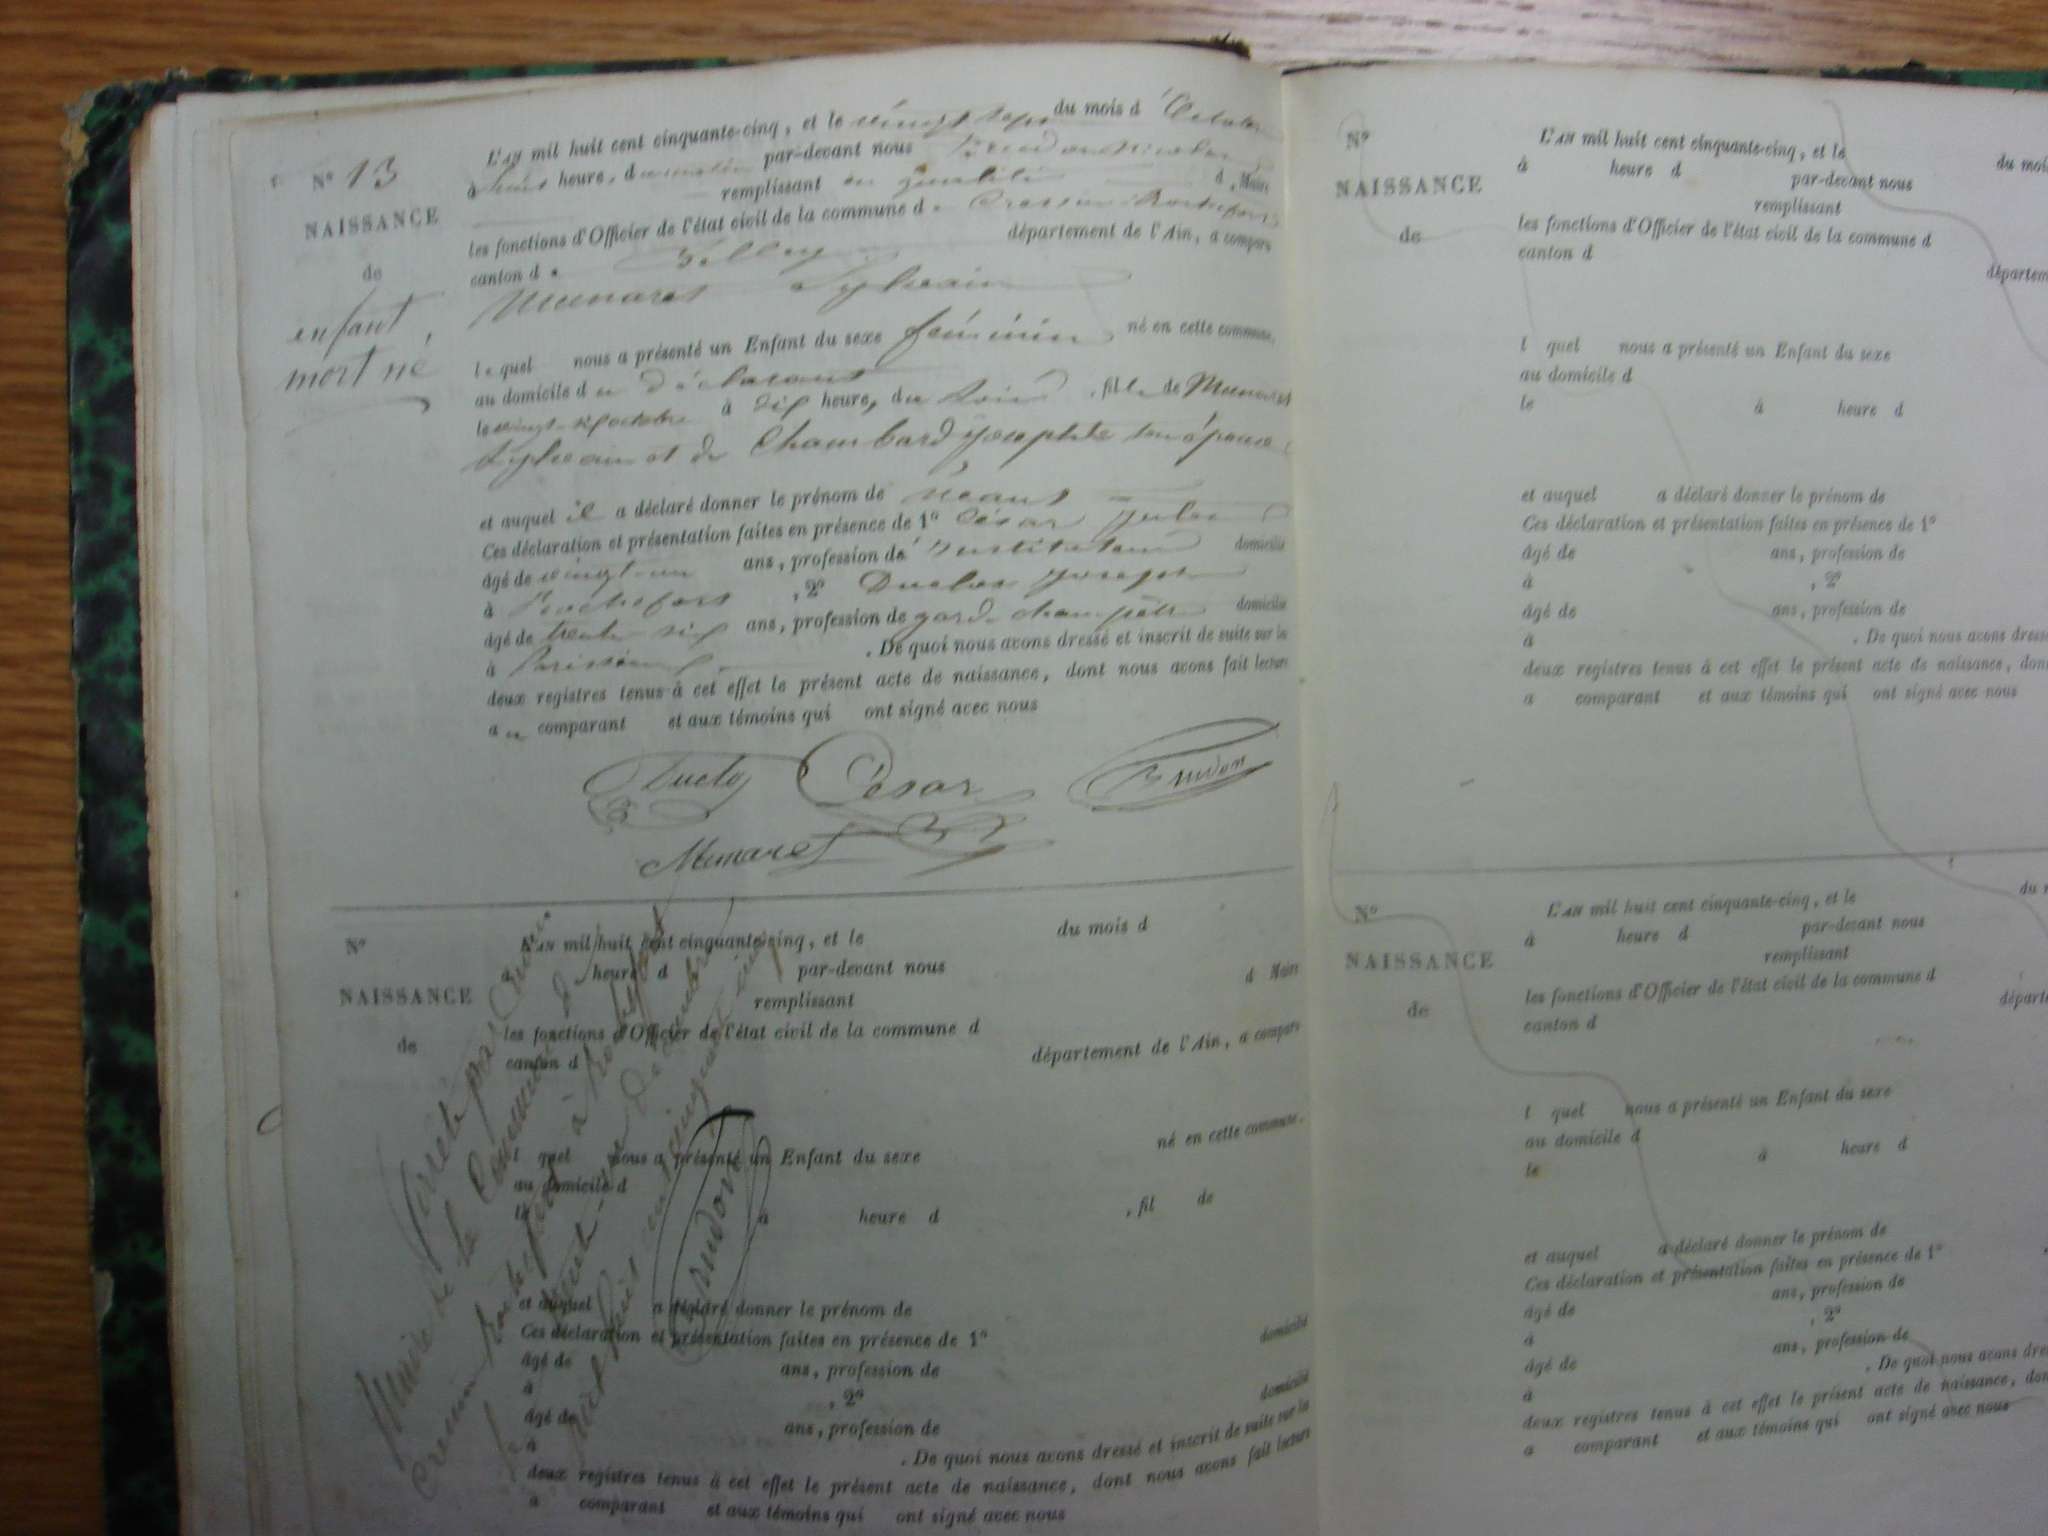 N° 13
NAISSANCE
de
enfant
mort né
L'AN mil huit cent cinquante-cinq, et le vingt sept du mois d'Octobre
à huit heure, du matin par-devant nous Brudon Nicolas
remplissant en qualité d, Maire
les fonctions d'Officier de l'état civil de la commune de Cressin-Rochefort
canton de Belley département de l'Ain, a comparu
Munaret Sylvain
lequel nous a présenté un Enfant du sexe féminin né en cette commune,
au domicile du déclarant
le vingt-six octobre à dix heure, du soir, fille de Munaret
Sylvain et de Chambard Josephte son épouse
et auquel il a déclaré donner le prénom de néant
Ces déclaration et présentation faites en présence de 1° César Jules
âgé de vingt-un ans, profession de Instituteur domicilié
à Rochefort, 2° Duclos Joseph
âgé de trente six ans, profession de garde champêtre domicilié
à Parissieu. De quoi nous avons dressé et inscrit de suite sur les
deux registres tenus à cet effet le présent acte de naissance, dont nous avons fait lecture
au comparant et aux témoins qui ont signé avec nous
Duclos César Brudon
Munaret
N°
NAISSANCE
de
L'AN mil huit cent cinquante-cinq, et le du mois d
à heure d par-devant nous
remplissant d Maire
les fonctions d'Officier de l'état civil de la commune d
canton d département de l'Ain, a comparu
l quel nous a présenté un Enfant du sexe né en cette commune,
au domicile d
le à heure d, fil de
et auquel a déclaré donner le prénom de
Ces déclaration et présentation faites en présence de 1°
âgé de ans, profession de domicilié
à, 2°
âgé de ans, profession de domicilié
à. De quoi nous avons dressé et inscrit de suite sur les
deux registres tenus à cet effet le présent acte de naissance, dont nous avons fait lecture
a comparant et aux témoins qui ont signé avec nous
Arrêté par nous
Maire de la Commune de
Cressin Rochefort à Rochefort
le trente-un décembre
mil huit cent cinquante cinq
Brudon
N°
NAISSANCE
de
L'AN mil huit cent cinquante-cinq, et le du mois
à heure d par-devant nous
remplissant
les fonctions d'Officier de l'état civil de la commune d
canton d départem
l quel nous a présenté un Enfant du sexe
au domicile d
le à heure d
et auquel a déclaré donner le prénom de
Ces déclaration et présentation faites en présence de 1°
âgé de ans, profession de
à, 2°
âgé de ans, profession de
à. De quoi nous avons dressé
deux registres tenus à cet effet le présent acte de naissance, dont
a comparant et aux témoins qui ont signé avec nous
N°
NAISSANCE
de
L'AN mil huit cent cinquante-cinq, et le du m
à heure d par-devant nous
remplissant
les fonctions d'Officier de l'état civil de la commune d
canton d départe
l quel nous a présenté un Enfant du sexe
au domicile d
le à heure d
et auquel a déclaré donner le prénom de
Ces déclaration et présentation faites en présence de 1°
âgé de ans, profession de
à, 2°
âgé de ans, profession de
à. De quoi nous avons dres
deux registres tenus à cet effet le présent acte de naissance, don
a comparant et aux témoins qui ont signé avec nous